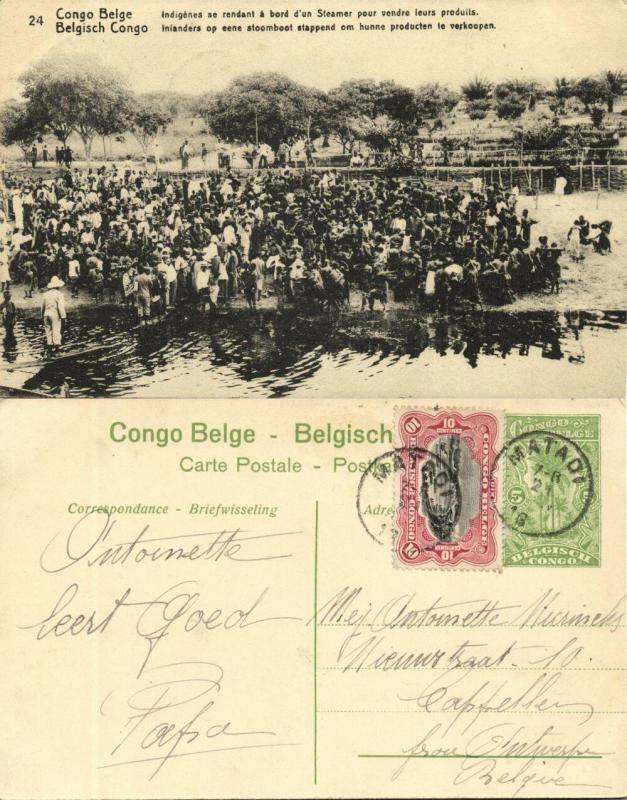 24 Congo Belge
Belgisch Congo
Indigènes se rendant à bord d'un Steamer pour vendre leurs produits.
Inlanders op eene stoomboot stappend om hunne producten te verkoopen.
Congo Belge - Belgisch
Carte Postale - Postka
Correspondance - Briefwisseling
Adre
10 10
CENTIMES
CONGO BELGE
BELGISCH-CONGO
10 10
CENTIEMEN
CONGO
BELGE
5
BELGISCH
CONGO
MATADI
MATADI
7-8
Antoinette
leert Goed
Papa
Mej Antoinette
Nieuwstraat 10
Cappellen
Belgique